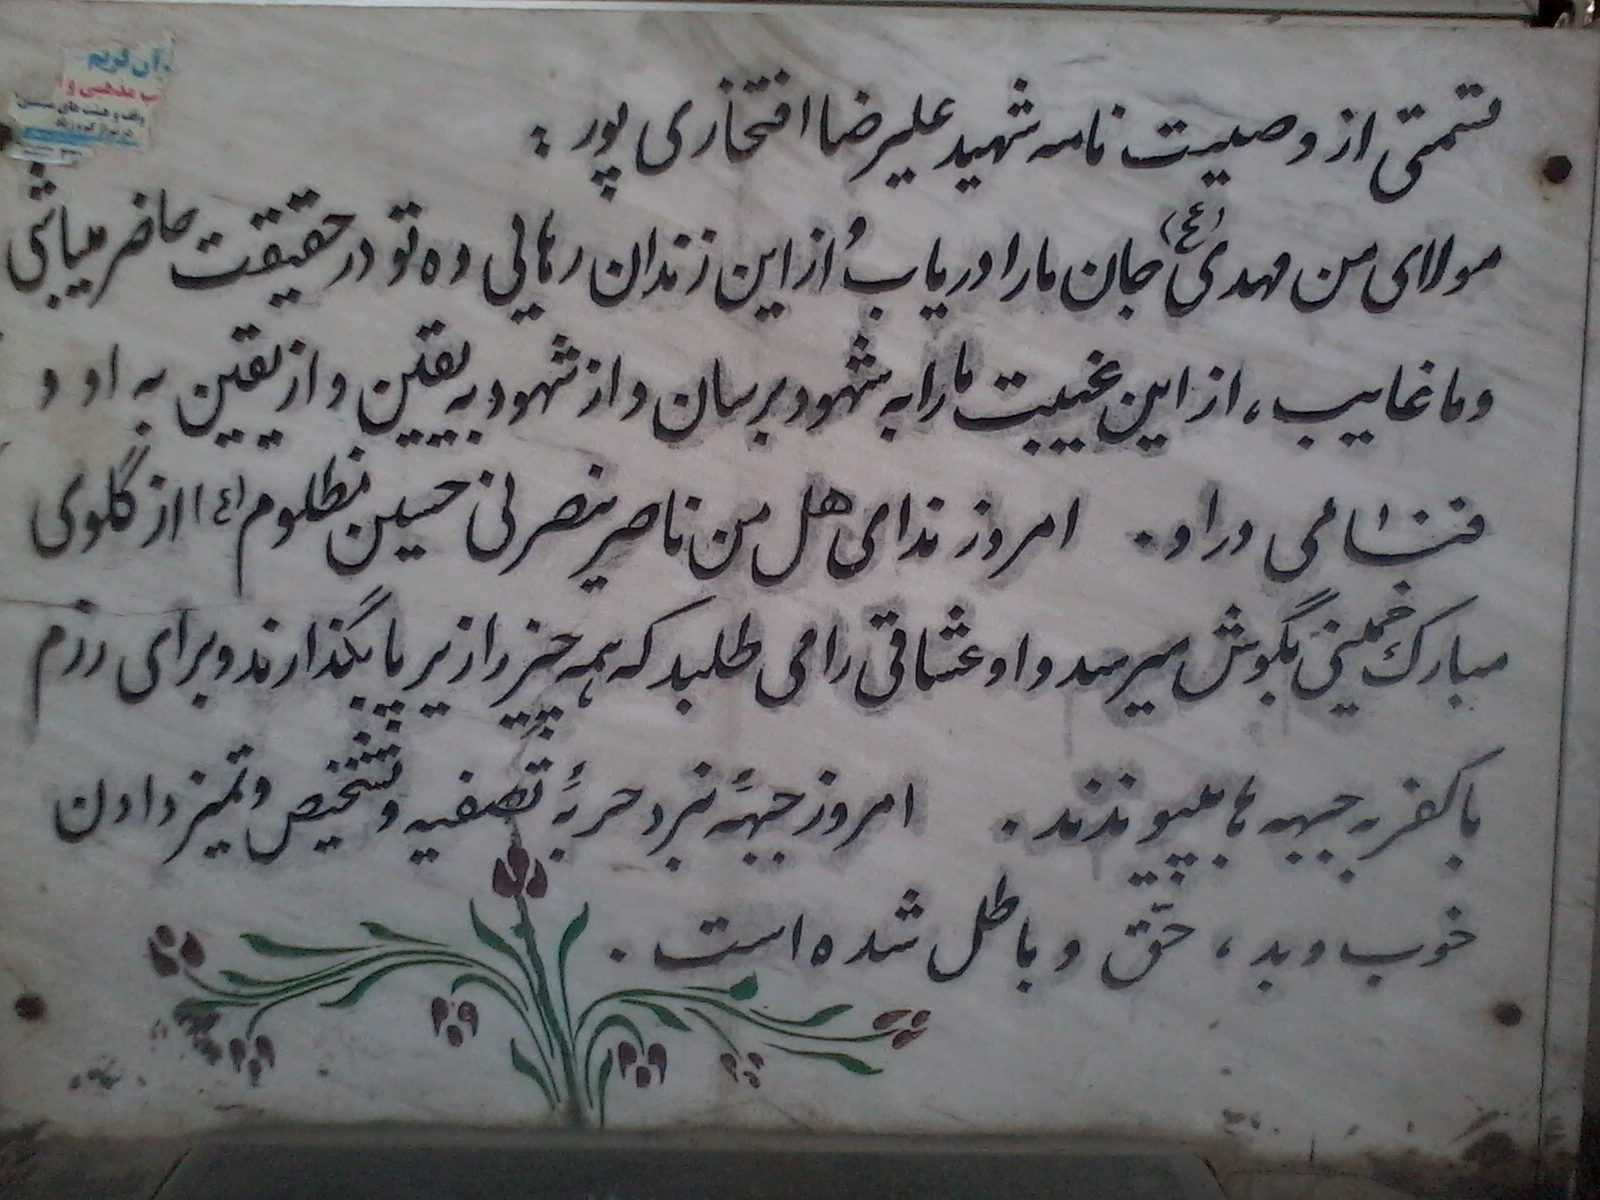 قسمتی از وصیت نامه شهید علیرضا افتخاری پور :
مولای من مهدی (ع) جان ما را دریاب و از این زندان رهایی ده تو در حقیقت حاضر میباشی
و ما غایب ، از این غیبت ما را به شهود برسان و از شهود به یقین و از یقین به او و
فنا می در او . امروز ندای هل من ناصر ینصرنی حسین مظلوم (ع) از گلوی
مبارک خمینی بگوش میرسد و او عشاقی را می طلبد که همه چیز را زیر پا بگذارند و برای رزم
با کفر به جبهه ها بپیوندند . امروز جبههٔ نبرد حربهٔ تصفیه و تشخیص و تمیز دادن
خوب و بد ، حق و باطل شده است .
آن کریم
ب مذهبی و